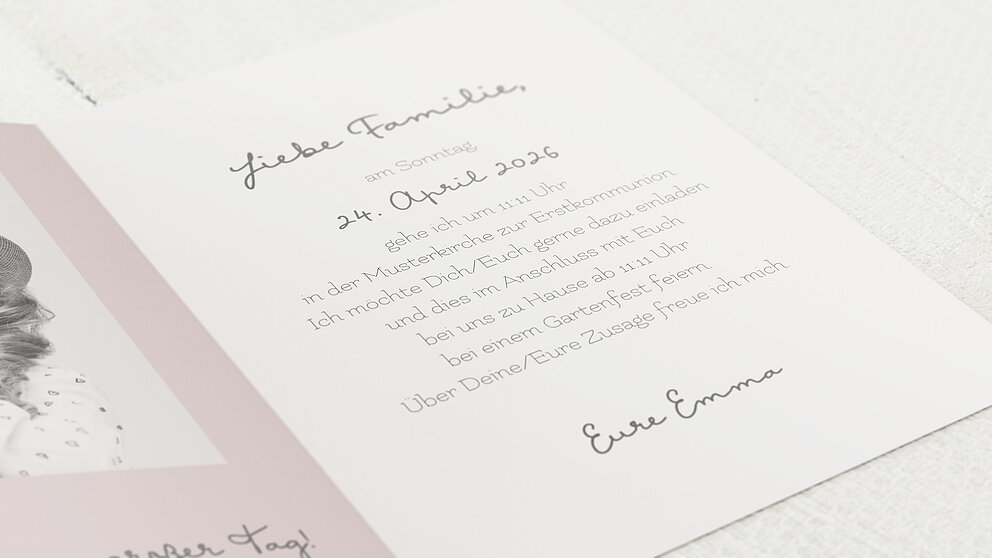 Liebe Familie,
am Sonntag
24. April 2026
gehe ich um 11:11 Uhr
in der Musterkirche zur Erstkommunion.
Ich möchte Dich/Euch gerne dazu einladen
und dies im Anschluss mit Euch
bei uns zu Hause ab 11:11 Uhr
bei einem Gartenfest feiern.
Über Deine/Eure Zusage freue ich mich.
Eure Emma
großer Tag!